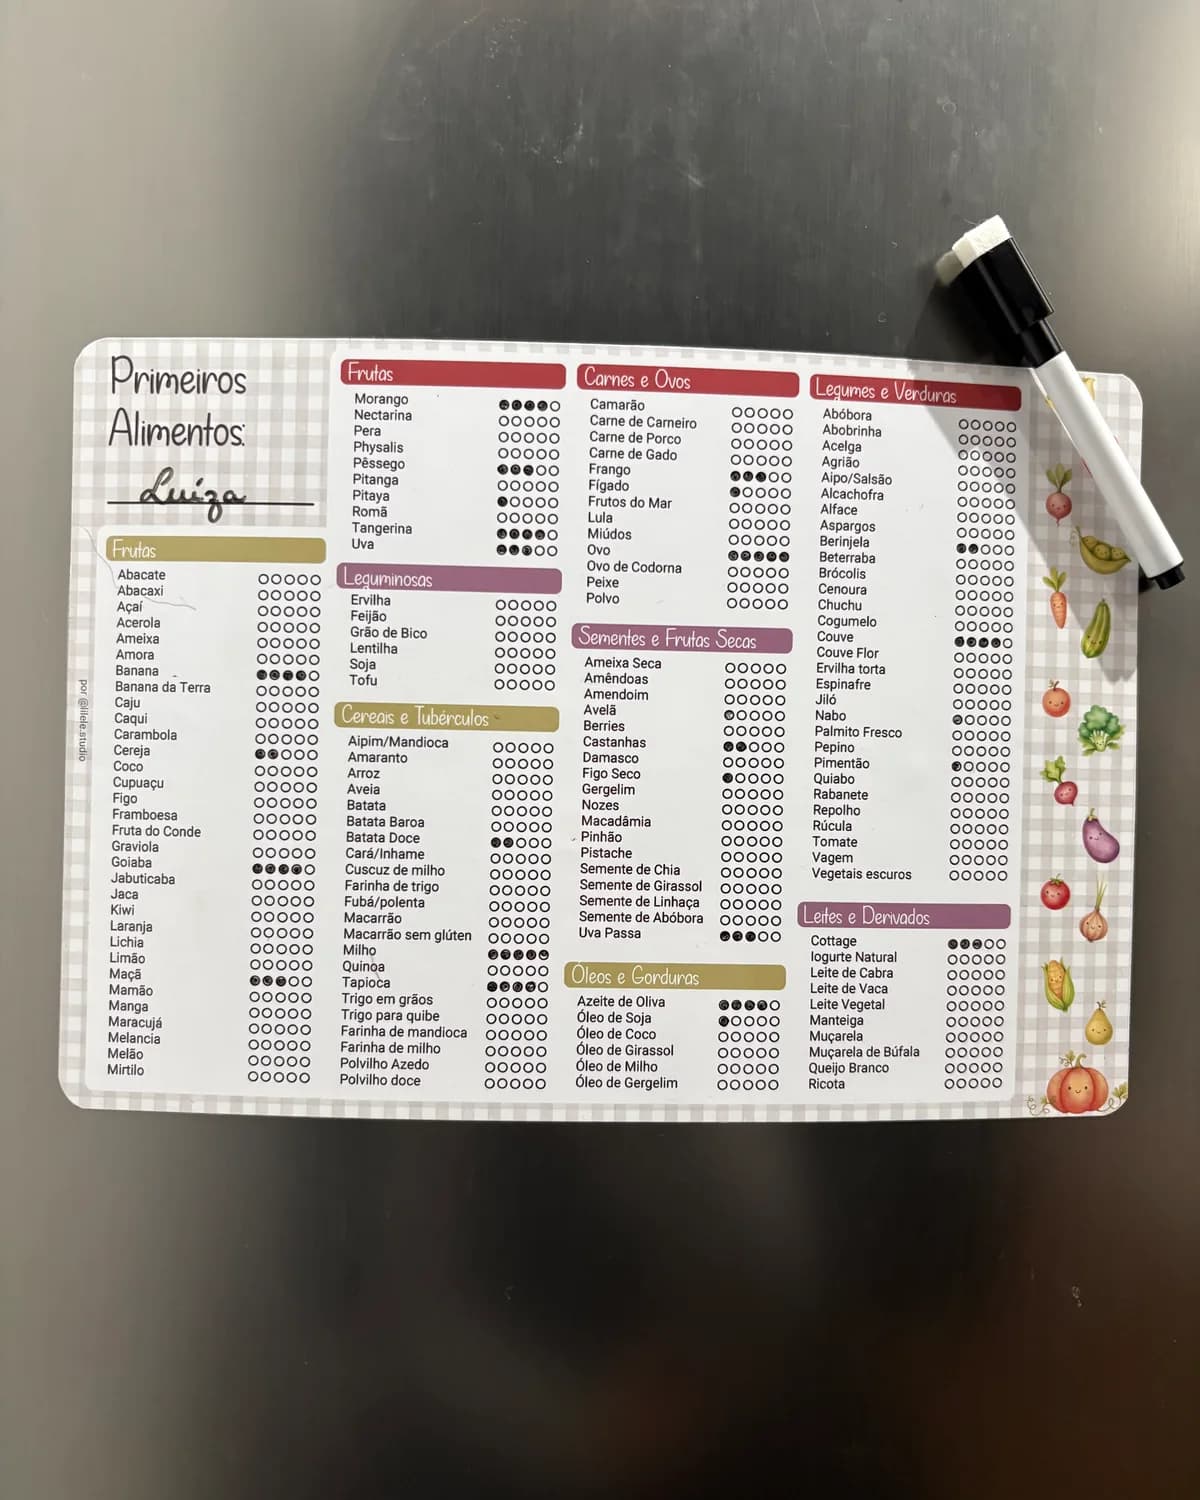 Primeiros
Alimentos:
Luiza
Frutas
Abacate
Abacaxi
Açaí
Acerola
Ameixa
Amora
Banana
Banana da Terra
Caju
Caqui
Carambola
Cereja
Coco
Cupuaçu
Figo
Framboesa
Fruta do Conde
Graviola
Goiaba
Jabuticaba
Jaca
Kiwi
Laranja
Lichia
Limão
Maçã
Mamão
Manga
Maracujá
Melancia
Melão
Mirtilo
por @lilele.studio
Frutas
Morango
Nectarina
Pera
Physalis
Pêssego
Pitanga
Pitaya
Romã
Tangerina
Uva
Leguminosas
Ervilha
Feijão
Grão de Bico
Lentilha
Soja
Tofu
Cereais e Tubérculos
Aipim/Mandioca
Amaranto
Arroz
Aveia
Batata
Batata Baroa
Batata Doce
Cará/Inhame
Cuscuz de milho
Farinha de trigo
Fubá/polenta
Macarrão
Macarrão sem glúten
Milho
Quinoa
Tapioca
Trigo em grãos
Trigo para quibe
Farinha de mandioca
Farinha de milho
Polvilho Azedo
Polvilho doce
Carnes e Ovos
Camarão
Carne de Carneiro
Carne de Porco
Carne de Gado
Frango
Fígado
Frutos do Mar
Lula
Miúdos
Ovo
Ovo de Codorna
Peixe
Polvo
Sementes e Frutas Secas
Ameixa Seca
Amêndoas
Amendoim
Avelã
Berries
Castanhas
Damasco
Figo Seco
Gergelim
Nozes
Macadâmia
Pinhão
Pistache
Semente de Chia
Semente de Girassol
Semente de Linhaça
Semente de Abóbora
Uva Passa
Óleos e Gorduras
Azeite de Oliva
Óleo de Soja
Óleo de Coco
Óleo de Girassol
Óleo de Milho
Óleo de Gergelim
Legumes e Verduras
Abóbora
Abobrinha
Acelga
Agrião
Aipo/Salsão
Alcachofra
Alface
Aspargos
Berinjela
Beterraba
Brócolis
Cenoura
Chuchu
Cogumelo
Couve
Couve Flor
Ervilha torta
Espinafre
Jiló
Nabo
Palmito Fresco
Pepino
Pimentão
Quiabo
Rabanete
Repolho
Rúcula
Tomate
Vagem
Vegetais escuros
Leites e Derivados
Cottage
Iogurte Natural
Leite de Cabra
Leite de Vaca
Leite Vegetal
Manteiga
Muçarela
Muçarela de Búfala
Queijo Branco
Ricota